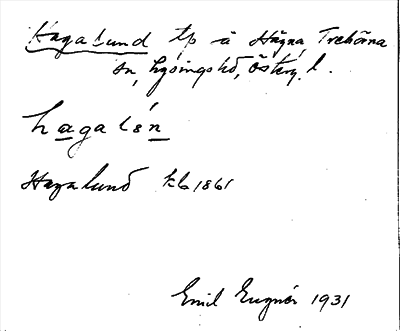 Hagalund tp å Hägna, Trehörna
sn, Lysingshd, Österg. l.
hagalén
Hagalund kb 1861
Emil Eugnér 1931